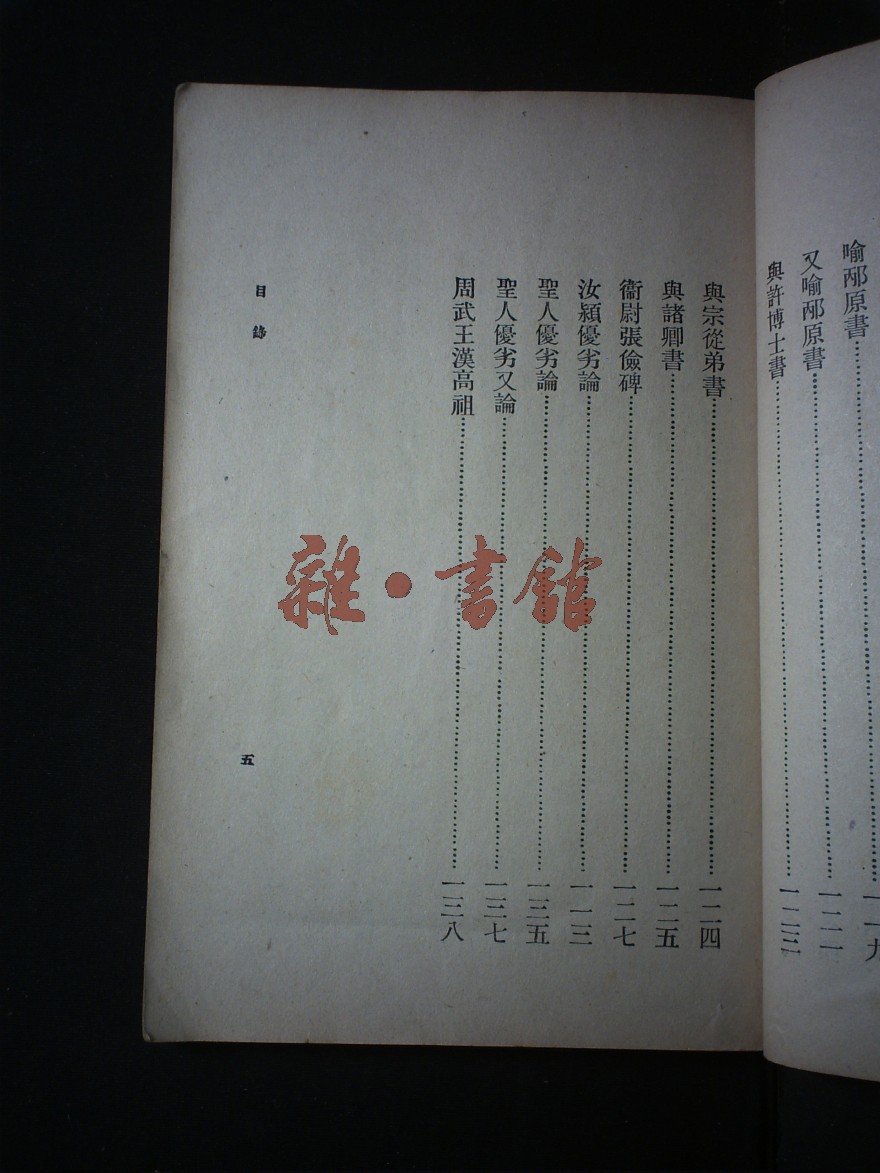 喻邴原書……一一九
又喻邴原書……一二一
與許博士書……一二三
與宗從弟書……一二四
與諸卿書……一二五
衞尉張儉碑……一二七
汝潁優劣論……一一三
聖人優劣論……一三五
聖人優劣又論……一三七
周武王漢高祖……一三八
目錄
五
雜·書館